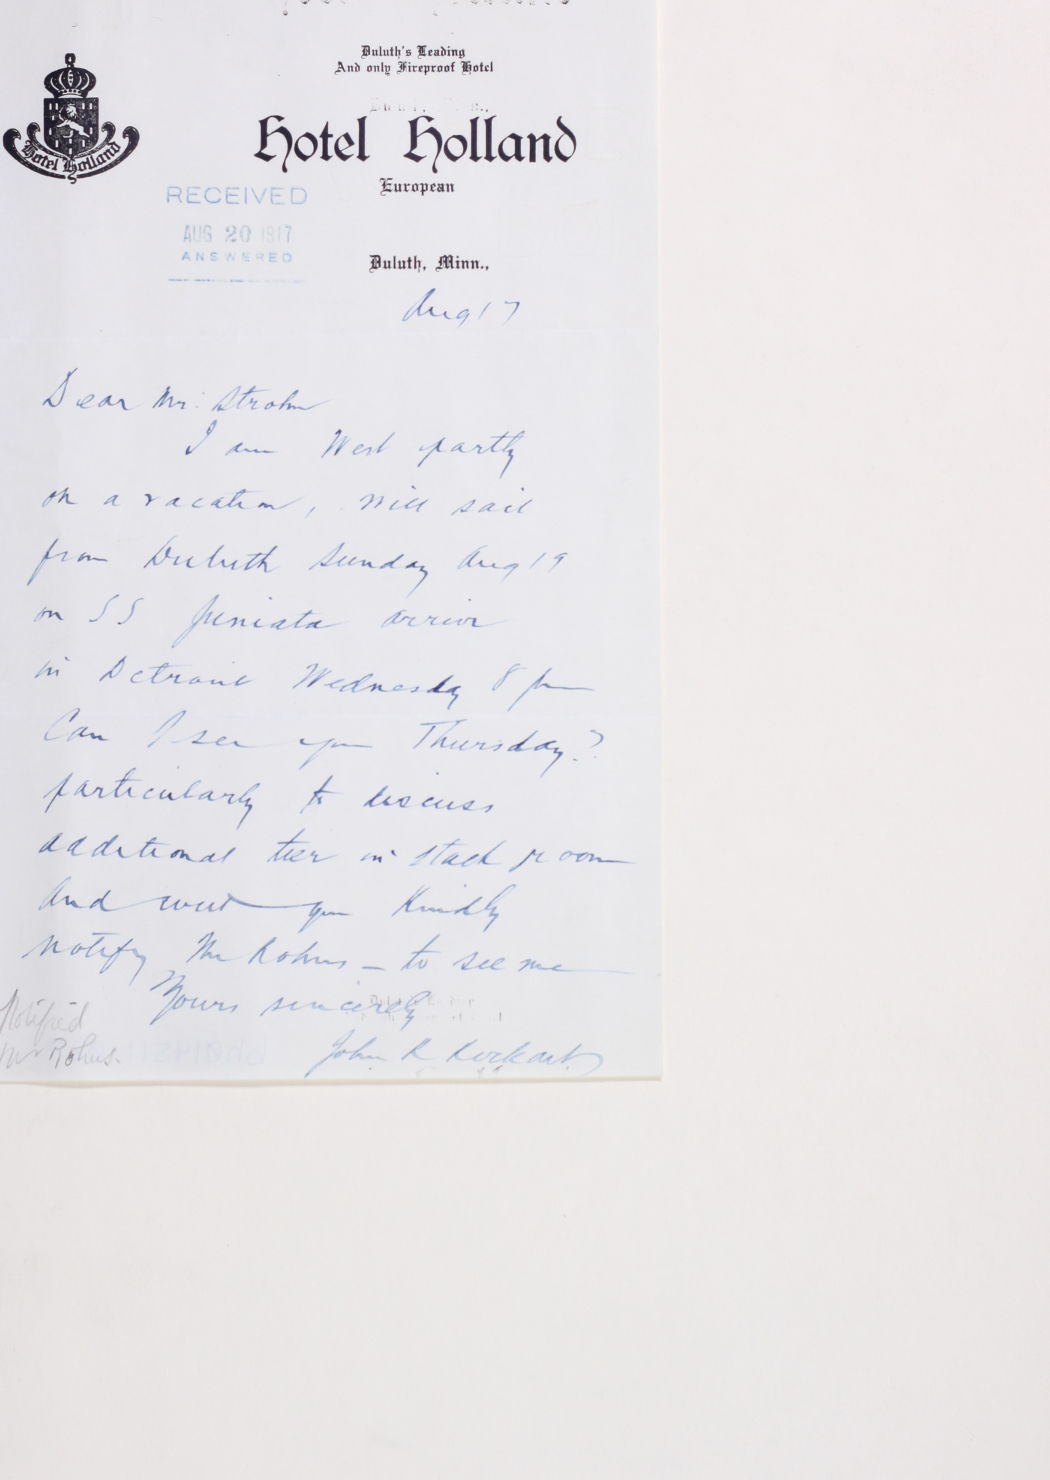 Duluth's Leading
And only Fireproof Hotel
Hotel Holland
Hotel Holland
European
RECEIVED
AUG 20 1917
ANSWERED
Duluth, Minn.,
Aug 17
Dear Mr. Strohm
I am West partly
on a vacation, will sail
from Duluth Sunday Aug 19
on SS Juniata arrive
in Detroit Wednesday 8 pm
Can I see you Thursday?
particularly to discuss
additional tier in stack room
and will you Kindly
notify Mr Rohns – to see me
Yours sincerely
John R
Notified
Mr Rohns.